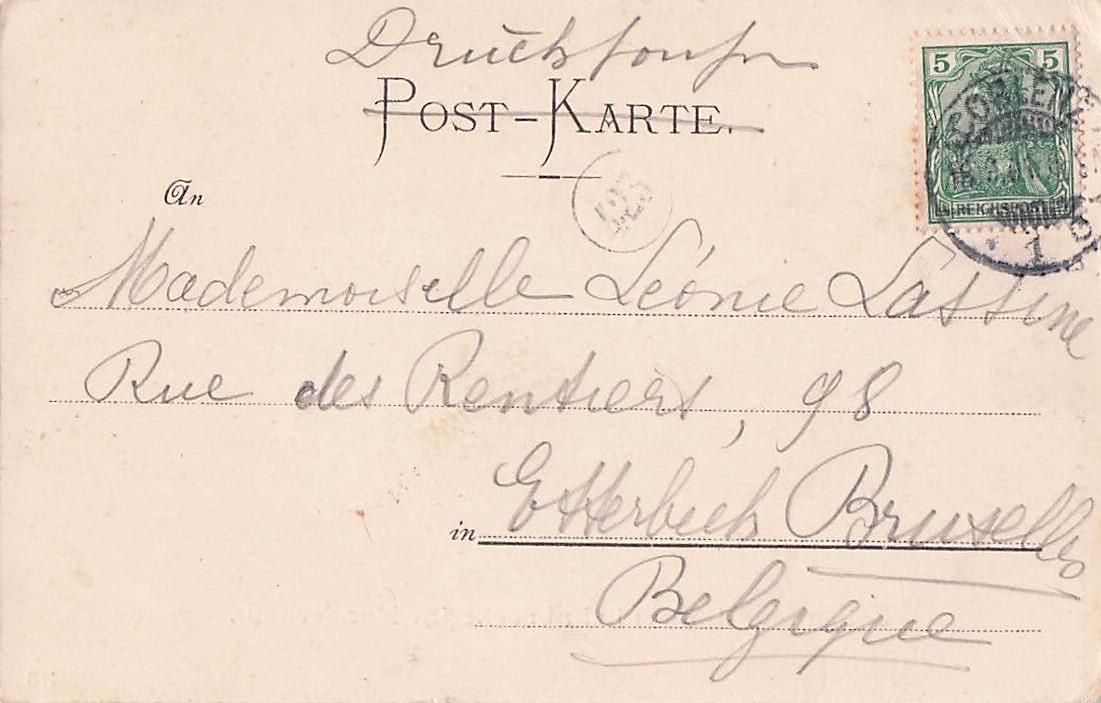 Drucksache
POST-KARTE.
5 5
COBLENZ
REICHSPOST
1
123
An
Mademoiselle Léonie Lassine
Rue des Rentiers, 98
in Etterbeek Bruxelles
Belgique